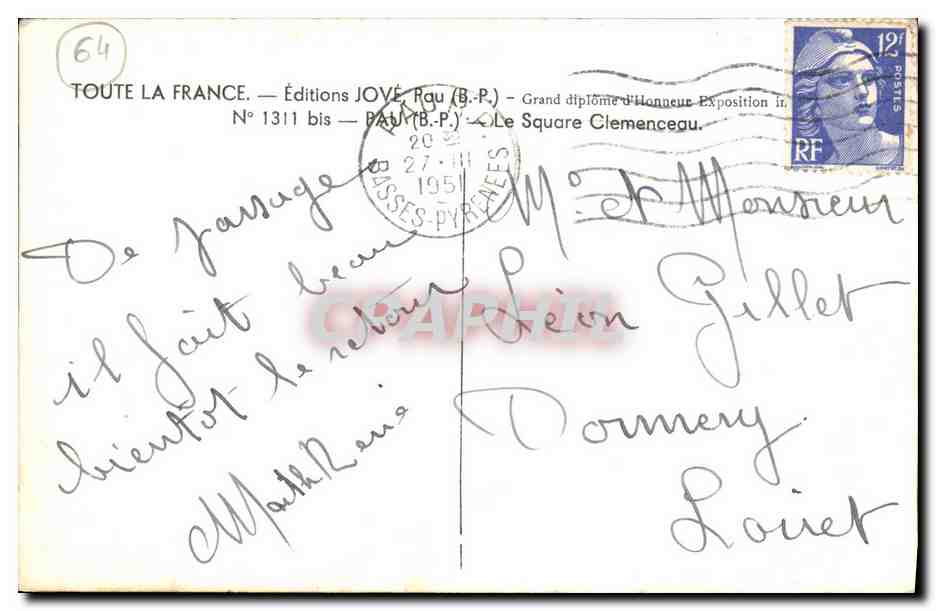 64
TOUTE LA FRANCE. — Éditions JOVÉ, Pau (B.-P.) - Grand diplôme d'Honneur Exposition
N° 1311 bis — PAU (B.-P.) — Le Square Clemenceau.
12f
POSTES
RF
20
27 · III
1951
BASSES-PYRENEES
De passage
il fait beau
bientôt le retour
M. et Monsieur
Léon Gillet
Dormery
Loiret
CPAPHIL